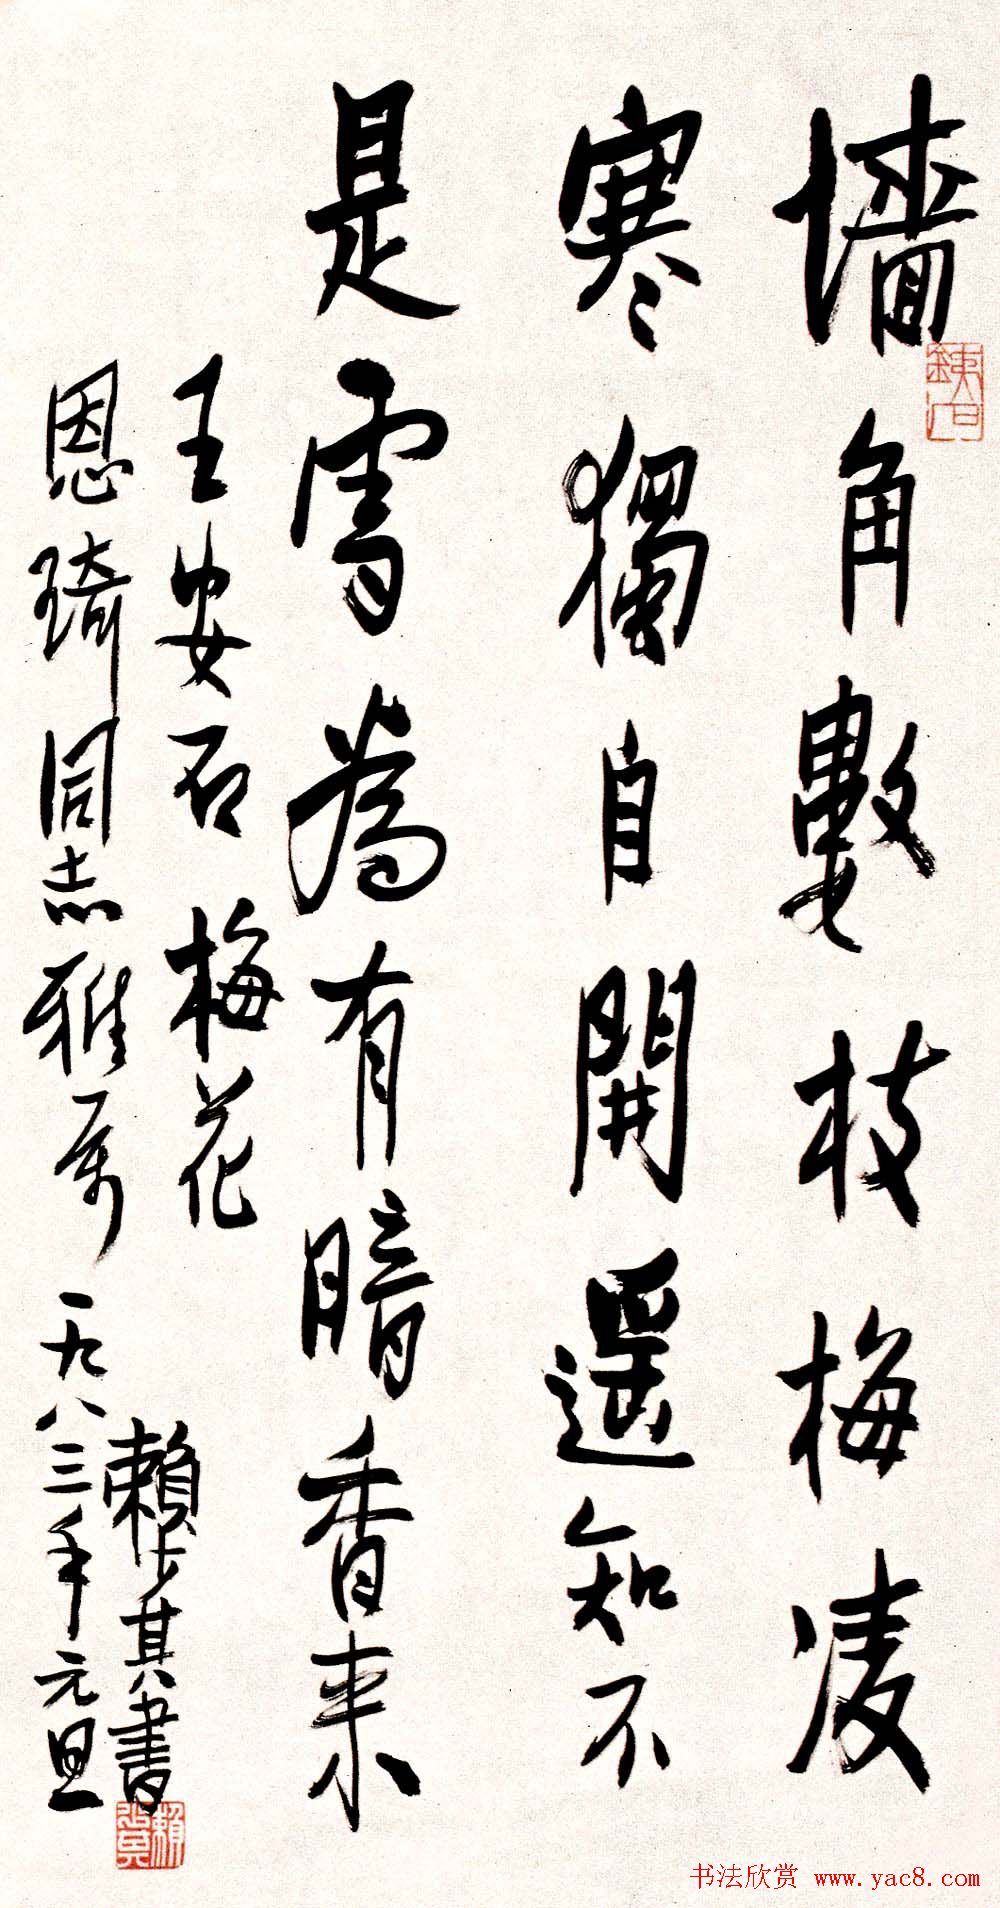 墻角數枝梅凌
寒獨自開遥知不
是雪為有暗香来
王安石 梅花
恩琦同志雅属 一九八三年元旦
賴少其書
书法欣赏 www.yac8.com